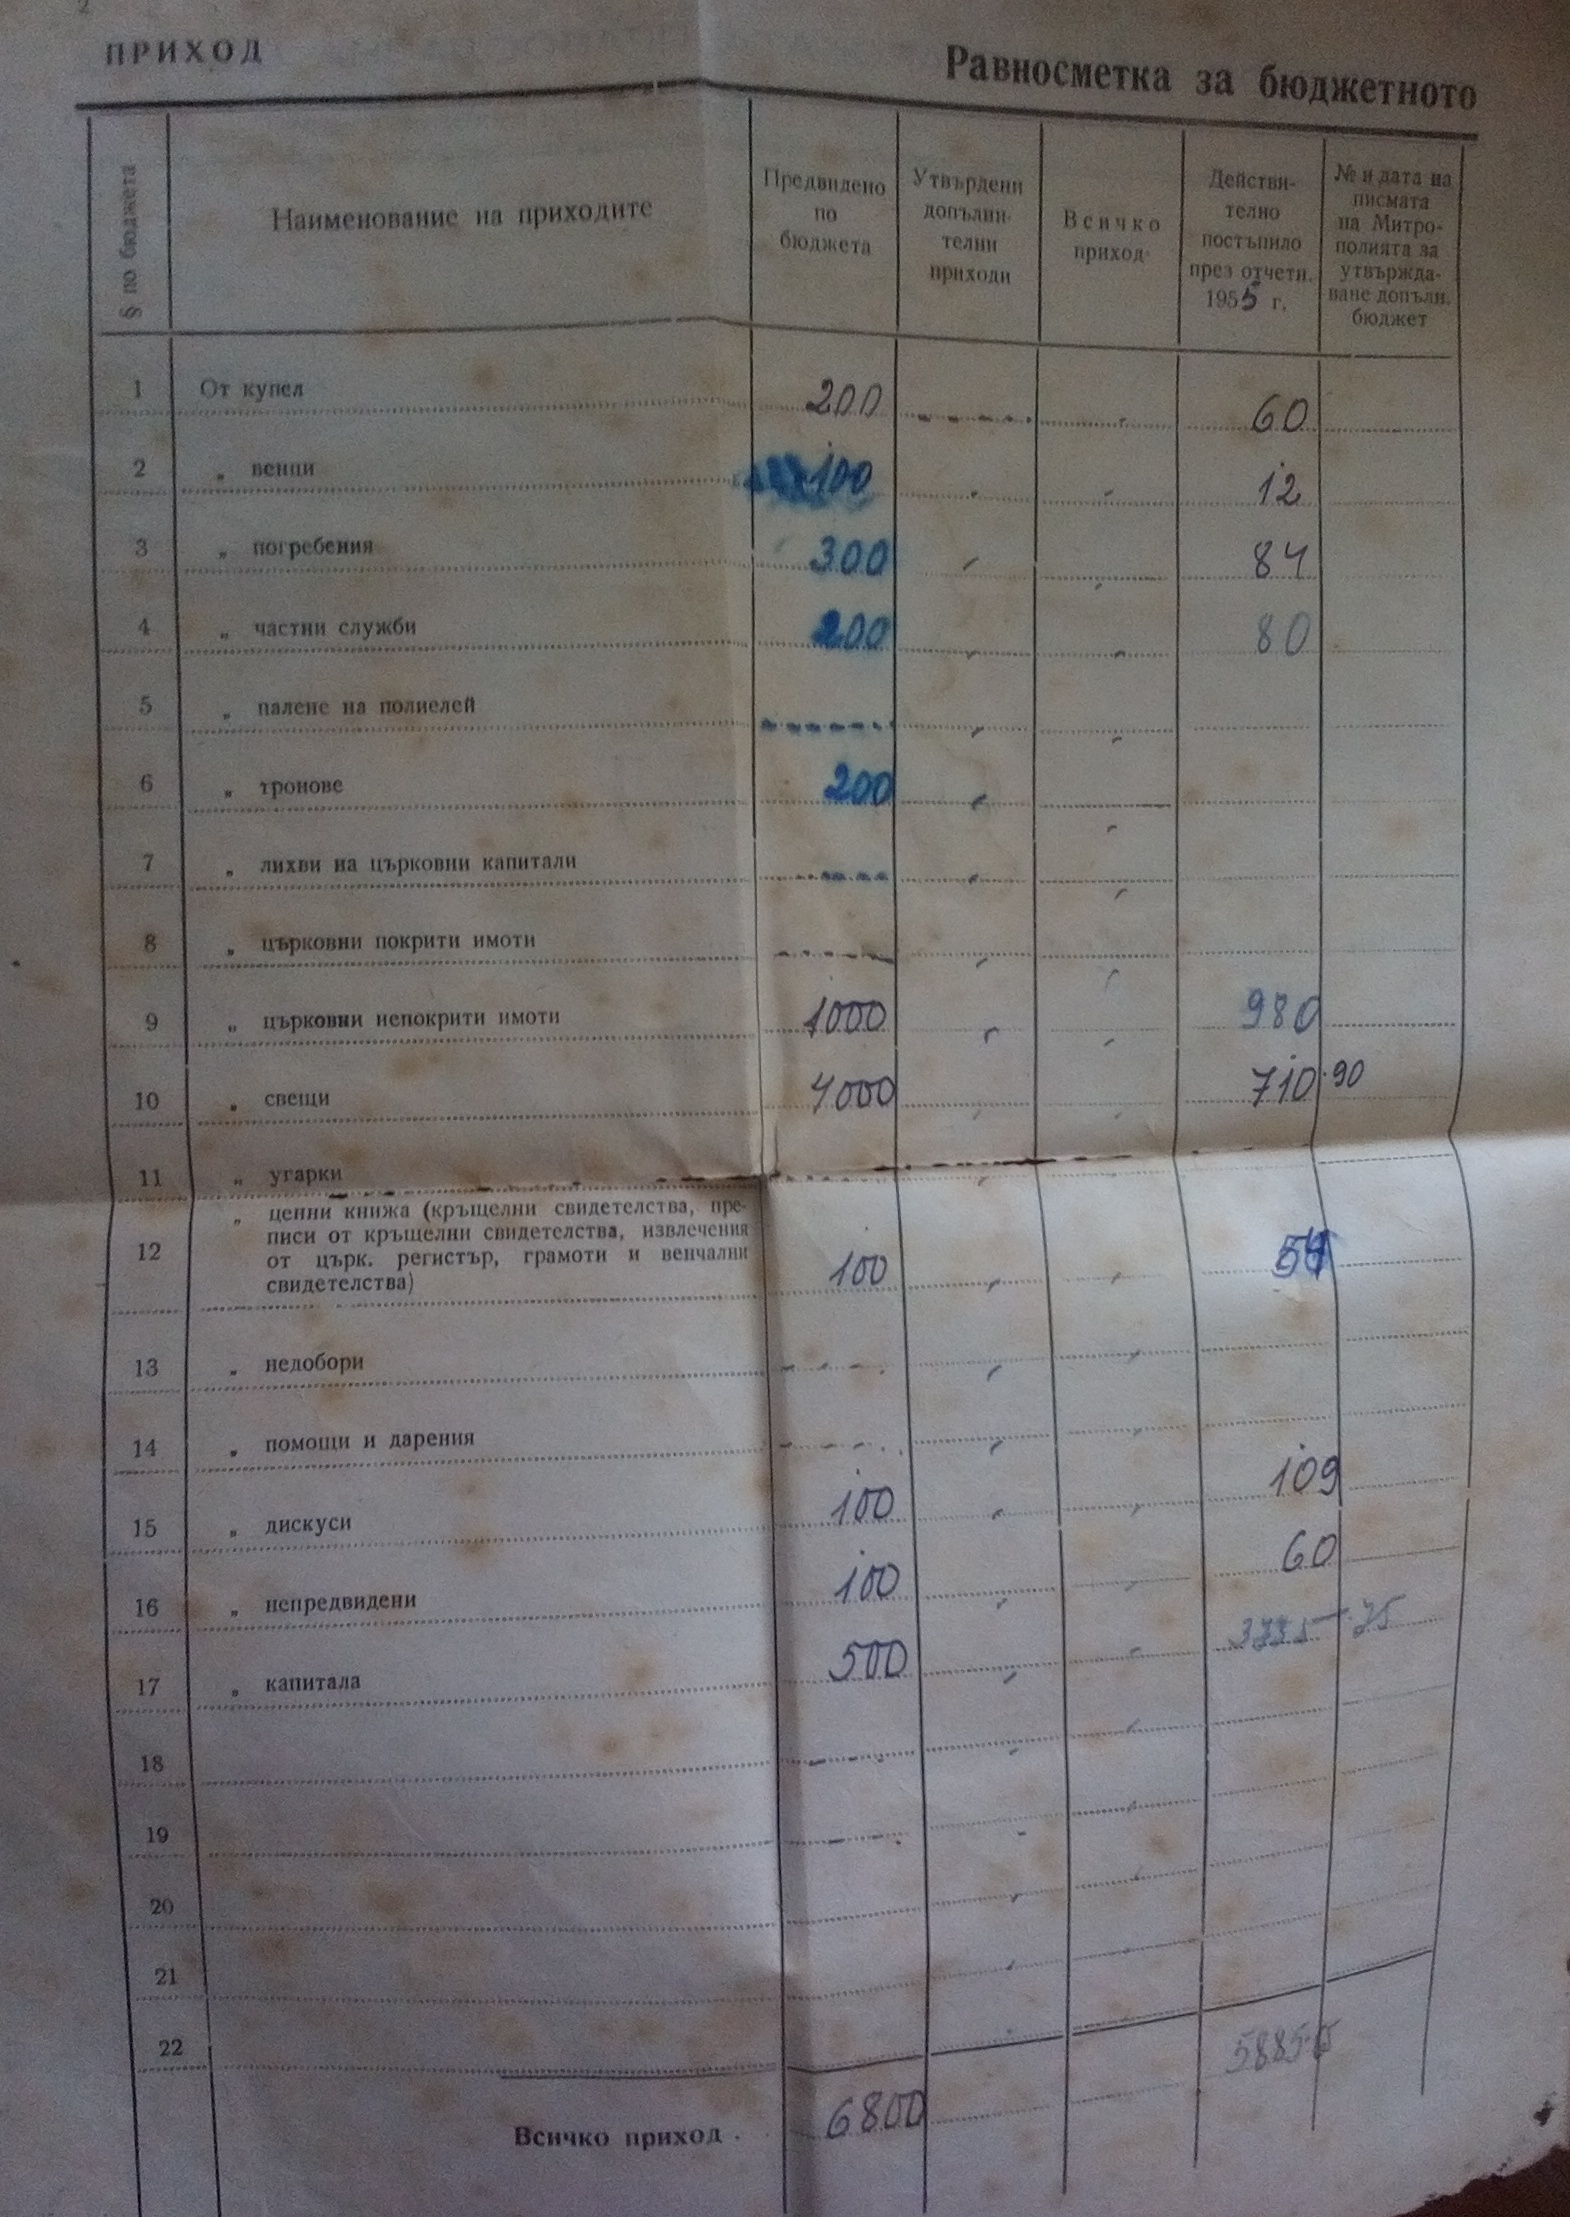 2
ПРИХОД
Равносметка за бюджетното
§ по бюджета
Наименование на приходите
Предвидено
по
бюджета
Утвърдени
допълни-
телни
приходи
Всичко
приход
Действи-
телно
постъпило
през отчетн.
1955 г.
№ и дата на
писмата
на Митро-
полията за
утвържда-
ване допълн.
бюджет
1 От купел 200 60
2 „ венци 100 12
3 „ погребения 300 84
4 „ частни служби 200 80
5 „ палене на полиелей
6 „ тронове 200
7 „ лихви на църковни капитали
8 „ църковни покрити имоти
9 „ църковни непокрити имоти 1000 980
10 „ свещи 4000 710.90
11 „ угарки
„ ценни книжа (кръщелни свидетелства, пре-
писи от кръщелни свидетелства, извлечения
12 от църк. регистър, грамоти и венчални 100 54
свидетелства)
13 „ недобори
14 „ помощи и дарения
15 „ дискуси 100 109
16 „ непредвидени 100 60
17 „ капитала 500
18
19
20
21
22
Всичко приход . 6800